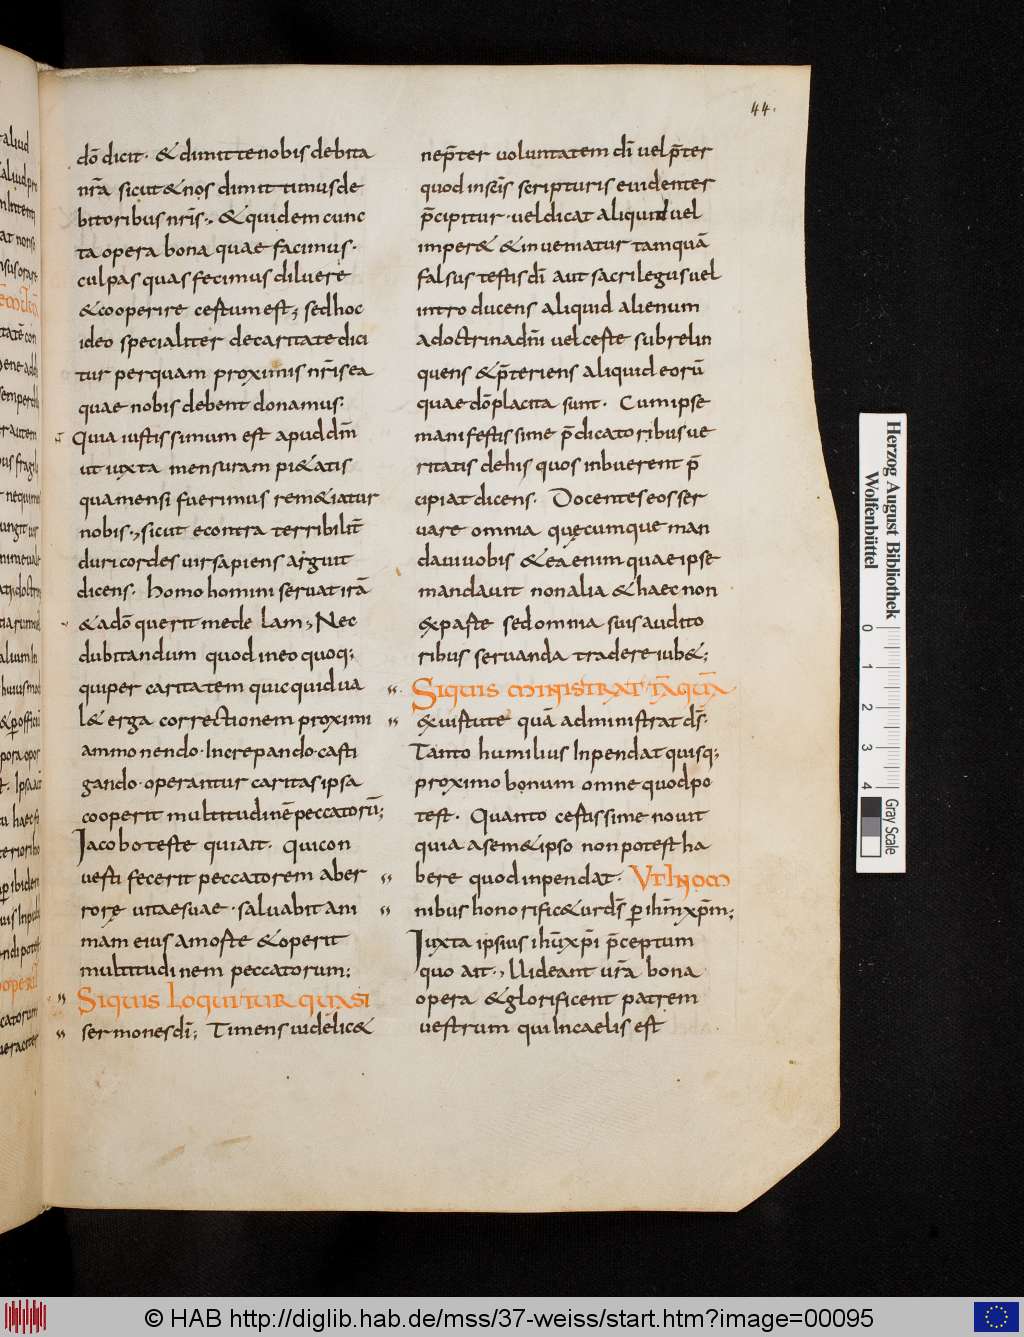 44.
dō dicit· & dimittenobis debita
nr̄a sicut&nos dimittimusde
bitoribus nr̄is·, &quidem cunc
ta opera bona quae facimus·
culpas quas fecimus diluere
&cooperire certum est; sedhoc
ideo specialiter decaritate dici
tur perquam proximis nr̄is ea
quae nobis debent donamus·
Quia iustissimum est apuddm̄
ut iuxta mensuram pi&atis
quamensi fuerimus rem&iatur
nobis·, sicut econtra terribilit̄
duricordes uir sapiens arguit
dicens· homo homini seruat irā
&adō querit medelam·, Nec
dubitandum quod ineo quoq;
quiper caritatem quicquid ua
l& erga correctionem proximi
ammonendo· Increpando· casti
gando· operantur caritas ipsa
cooperit multitudinē peccatorū;
Iacobo teste quiait· Quicon
uerti fecerit peccatorem aber
rorę uitaesuae· saluabit ani
mam eius amorte &operit
multitudinem peccatorum;
Siquis loquitur quasi
sermonesdī; Timens uidelic&
nep̄ter uoluntatem dī uel p̄ter
quod insc̄is scripturis euidenter
p̄cipitur· uel dicat aliquid uel
imper& &inueniatur tamquā
falsus testis dī aut sacrilegus uel
introducens aliquid alienum
adoctrinadn̄i uel certe subrelin
quens &p̄teriens aliquid eorū
quae dō placita sunt· Cum ipse
manifestissime p̄dicatoribus ue
ritatis dehis quos inbuerent p̄
cipiat dicens· Docentes eos ser
uare omnia quęcumque man
daui uobis &ea enim quae ipse
mandauit non alia &haec non
exparte sed omnia suis audito
ribus seruanda tradere iub&;
Siquis ministrat tāquā
&uirtute quā administrat ds̄·
Tanto humilius Inpendat quisq;
proximo bonum omne quod po
test· Quanto certissime nouit
quia asem&ipso non potest ha
bere quod inpendat· Vt Inom
nibus honorific&urds̄ ꝑ ihm̄xp̄m;
Iuxta ipsius ihūxp̄i p̄ceptum
quo ait·, Uideant ur̄a bona
opera &glorificent patrem
uestrum qui Incaelis est
Herzog August Bibliothek
Wolfenbüttel
0 1 2 3 4
Gray Scale
© HAB http://diglib.hab.de/mss/37-weiss/start.htm?image=00095